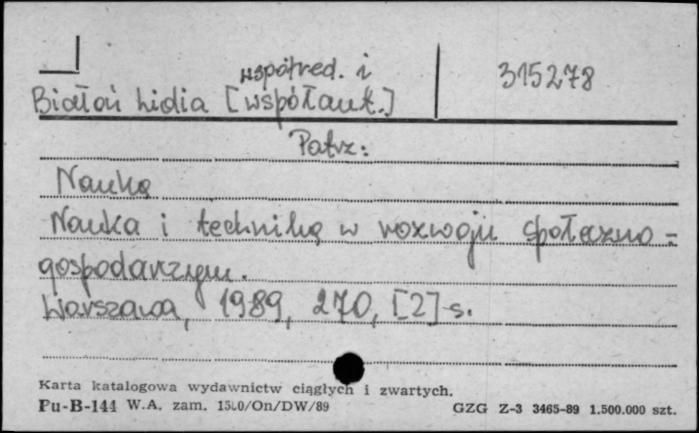 współred. i
315278
Białoń Lidia [współaut.]
Patrz:
Nauka
Nauka i technika w rozwoju społeczno-
gospodarczym.
Warszawa, 1989, 270, [2] s.
Karta katalogowa wydawnictw ciągłych i zwartych.
Pu-B-144 W.A. zam. 1500/On/DW/89
GZG Z-3 3465-89 1.500.000 szt.